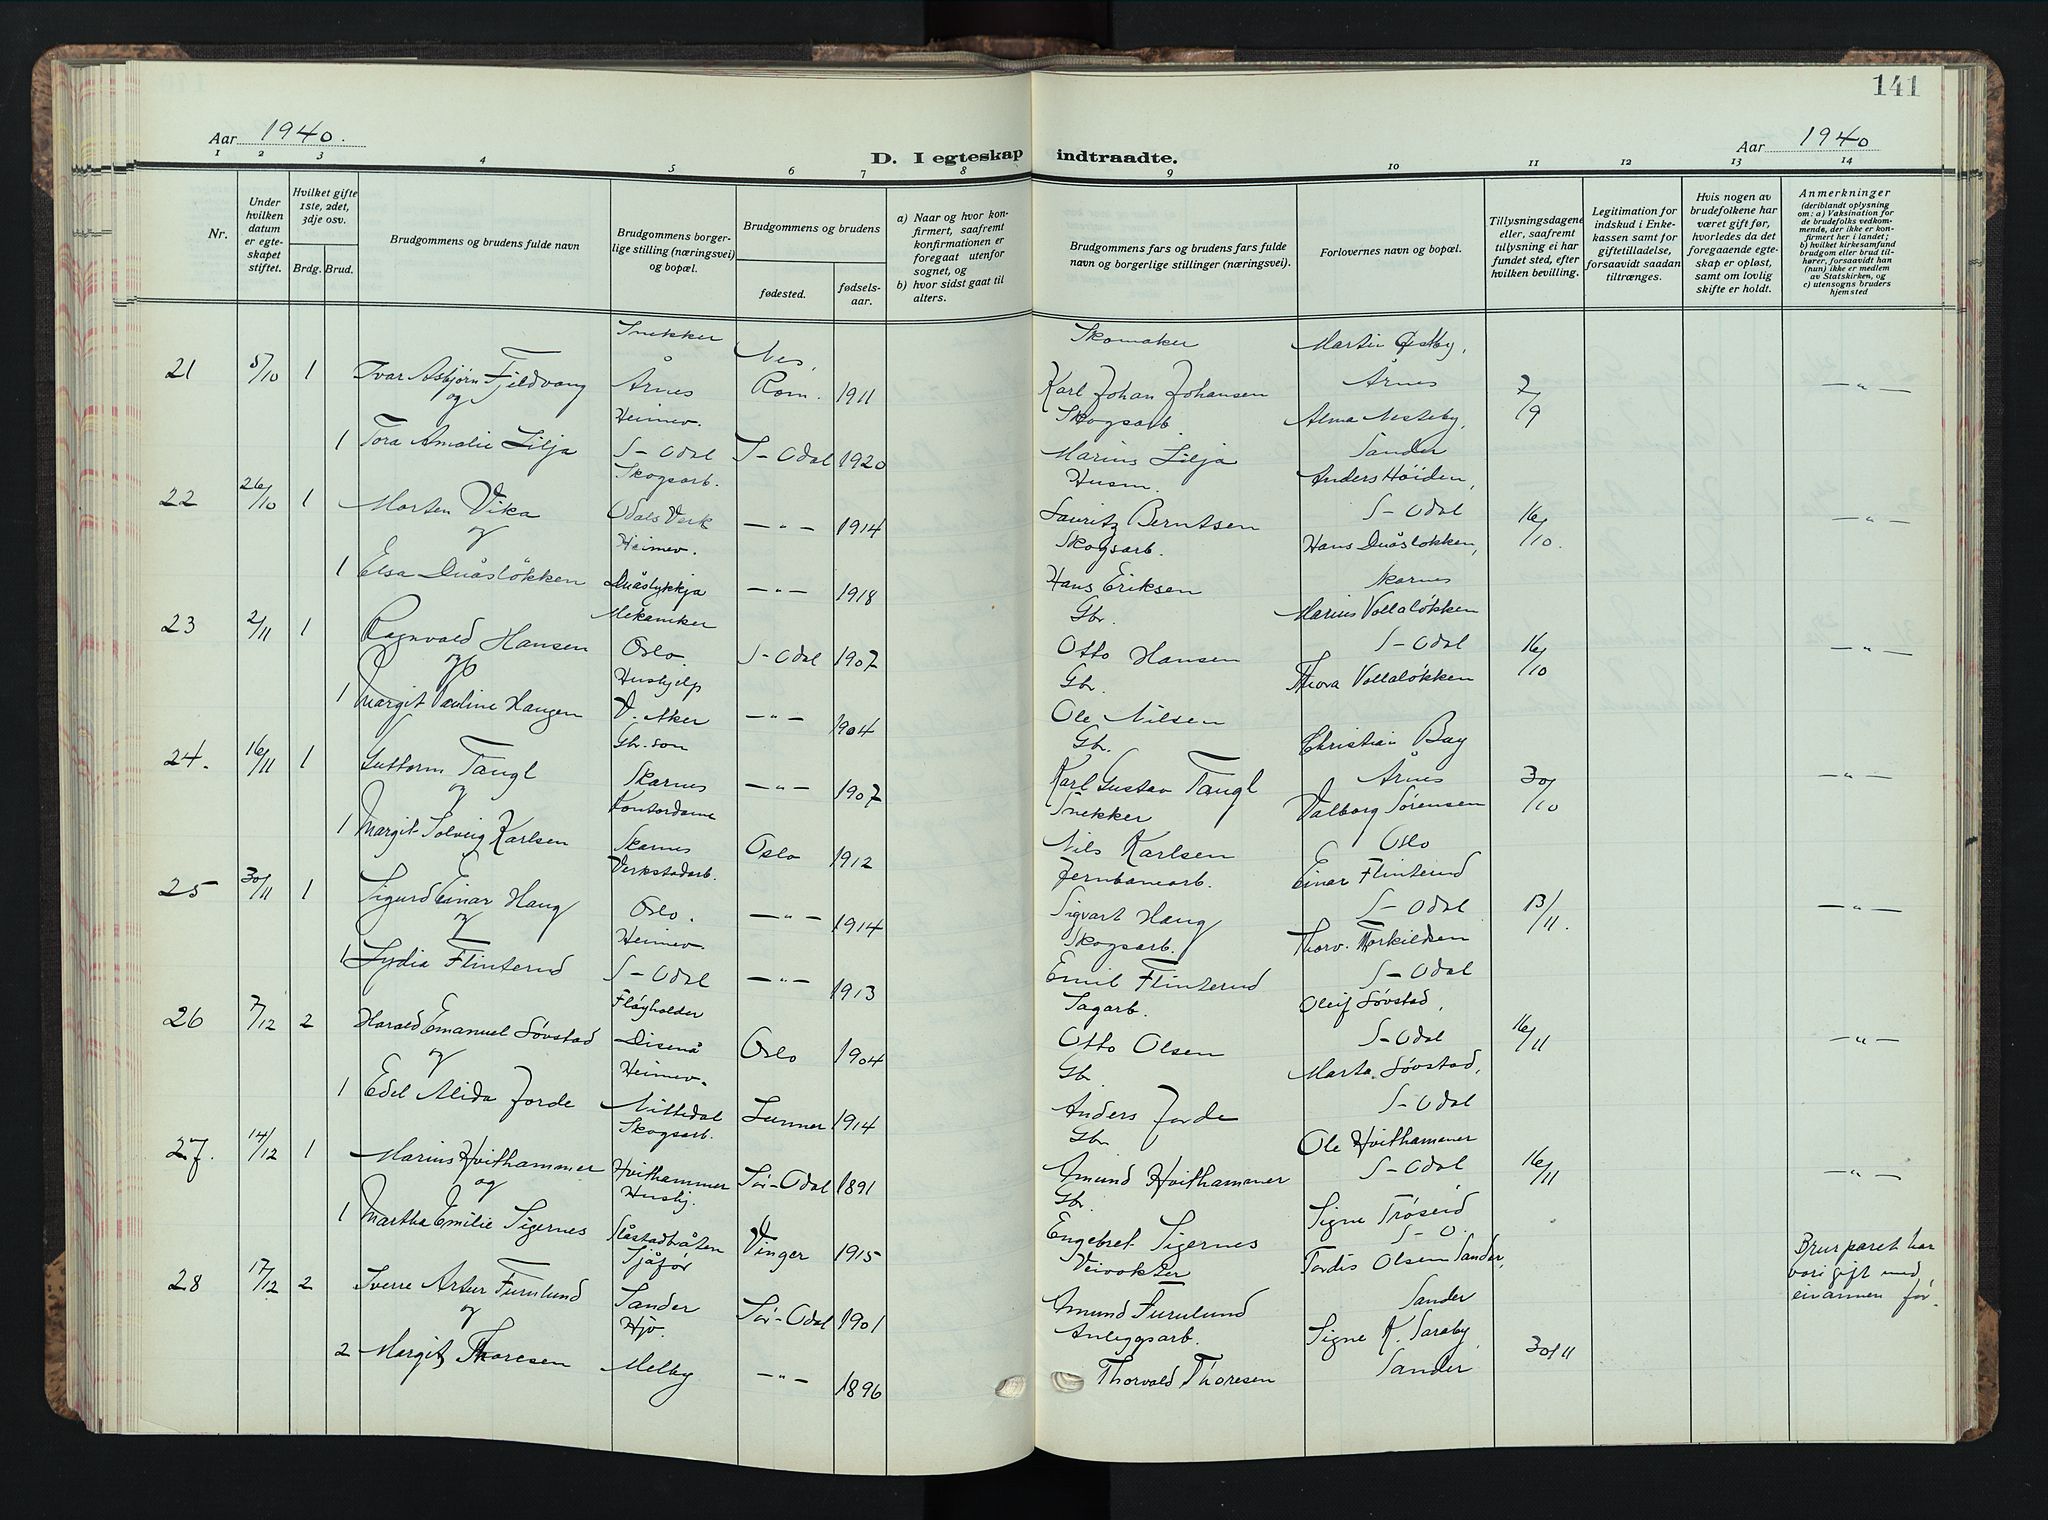 141
Aar 1940.
D. I egteskap indtraadte.
Aar 1940
1 2 3 4 5 6 7 8 9 10 11 12 13 14
Nr.
Under hvilken datum er egteskapet stiftet.
Hvilket gifte 1ste, 2det, 3dje osv.
Brdg. Brud.
Brudgommens og brudens fulde navn
Brudgommens borgerlige stilling (næringsvei) og bopæl.
Brudgommens og brudens
fødested.
fødselsaar.
a) Naar og hvor konfirmert, saafremt konfirmationen er foregaat utenfor sognet, og
b) hvor sidst gaat til alters.
Brudgommens fars og brudens fars fulde navn og borgerlige stillinger (næringsvei).
Forlovernes navn og bopæl.
Tillysningsdagene eller, saafremt tillysning ei har fundet sted, efter hvilken bevilling.
Legitimation for indskud i Enkekassen samt for giftetilladelse, forsaavidt saadan tiltrænges.
Hvis nogen av brudefolkene har været gift før, hvorledes da det foregaaende egteskap er opløst, samt om lovlig skifte er holdt.
Anmerkninger
(deriblandt oplysning om: a) Vaksination for de brudefolks vedkommende, der ikke er konfirmert her i landet;
b) hvilket kirkesamfund brudgom eller brud tilhører, forsaavidt han (hun) ikke er medlem av Statskirken, og
c) utensogns bruders hjemsted
Snekker Nes, Skomaker Martin Østby,
21 5/10 1 Ivar Asbjørn Fjeldvang Årnes Rom. 1911 Karl Johan Johansen Årnes 2/9 — " —
og Heimev. Skogsarb. Alma Nesteby,
1 Tora Amalie Lilja S-Odal S-Odal 1920 Marius Lilja Sander
Skogsarb. Husm. Anders Høiden,
22 26/10 1 Morten Vika Odals Verk — " — 1914 Lauritz Berntsen S-Odal 16/10. — " —
og Heimev. Skogsarb. Hans Duåsløkken,
1 Elsa Duåsløkken Duåslykkja — " — 1918 Hans Eriksen Skarnes
Mekaniker Gbr. Marius Vollaløkken
23 2/11 1 Ragnvald Hansen Oslo. S-Odal 1907 Otto Hansen S-Odal 16/10 — " —
og Hushjelp Gbr. Thora Vollaløkken
1 Margit Pauline Haugen V. Aker — " — 1904 Ole Nilsen
Gbr. son Gbr. Christian Bay
24. 16/11 1 Guttorm Tangl Skarnes — " — 1907 Karl Gustav Tangl Årnes 30/10 — " —
og Kontordame Snekker Valborg Sørensen
1 Margit Solveig Karlsen Skarnes Oslo 1912 Nils Karlsen Oslo
Verkstadarb. Jernbanearb. Einar Flinterud
25 30/11 1 Sigurd Einar Haug Oslo. — " — 1914 Sigvart Haug S-Odal 13/11. — " —
og Heimev. Skogsarb. Thorv. Torkildsen
1 Lydia Flinterud S-Odal — " — 1913 Emil Flinterud S-Odal
Fløyholder Sagarb. Oleif Søvstad,
26 7/12 2 Harald Emanuel Søvstad Disenå Oslo 1904 Otto Olsen S-Odal 16/11 — " —
og Heimev. Gbr Marta Søvstad,
1 Edel Alida Jorde Nittedal Lunner 1914 Anders Jorde S-Odal
Skogsarb. Gbr Ole Hvithammer
27. 14/12 1 Marius Hvithammer Hvithammer Sør-Odal 1891 Amund Hvithammer S-Odal 16/11 — " —
og Husbj. Gbr. Signe Trøseid
1 Martha Emilie Sigernes Slåstadbråten Vinger 1915 Engebret Sigernes S-O.
Sjåfør Veivokter Tordis Olsen Sander,
28 17/12 2 Sverre Artur Furulund Sander Sør-Odal 1901 Amund Furulund Sander
og Hjv. Anleggsarb. Signe K. Saraby,
2 Margit Thoresen Melby — " — 1896 Thorvald Thoresen Sander 30/11
Brurparet har
vori gift med
einannen før.